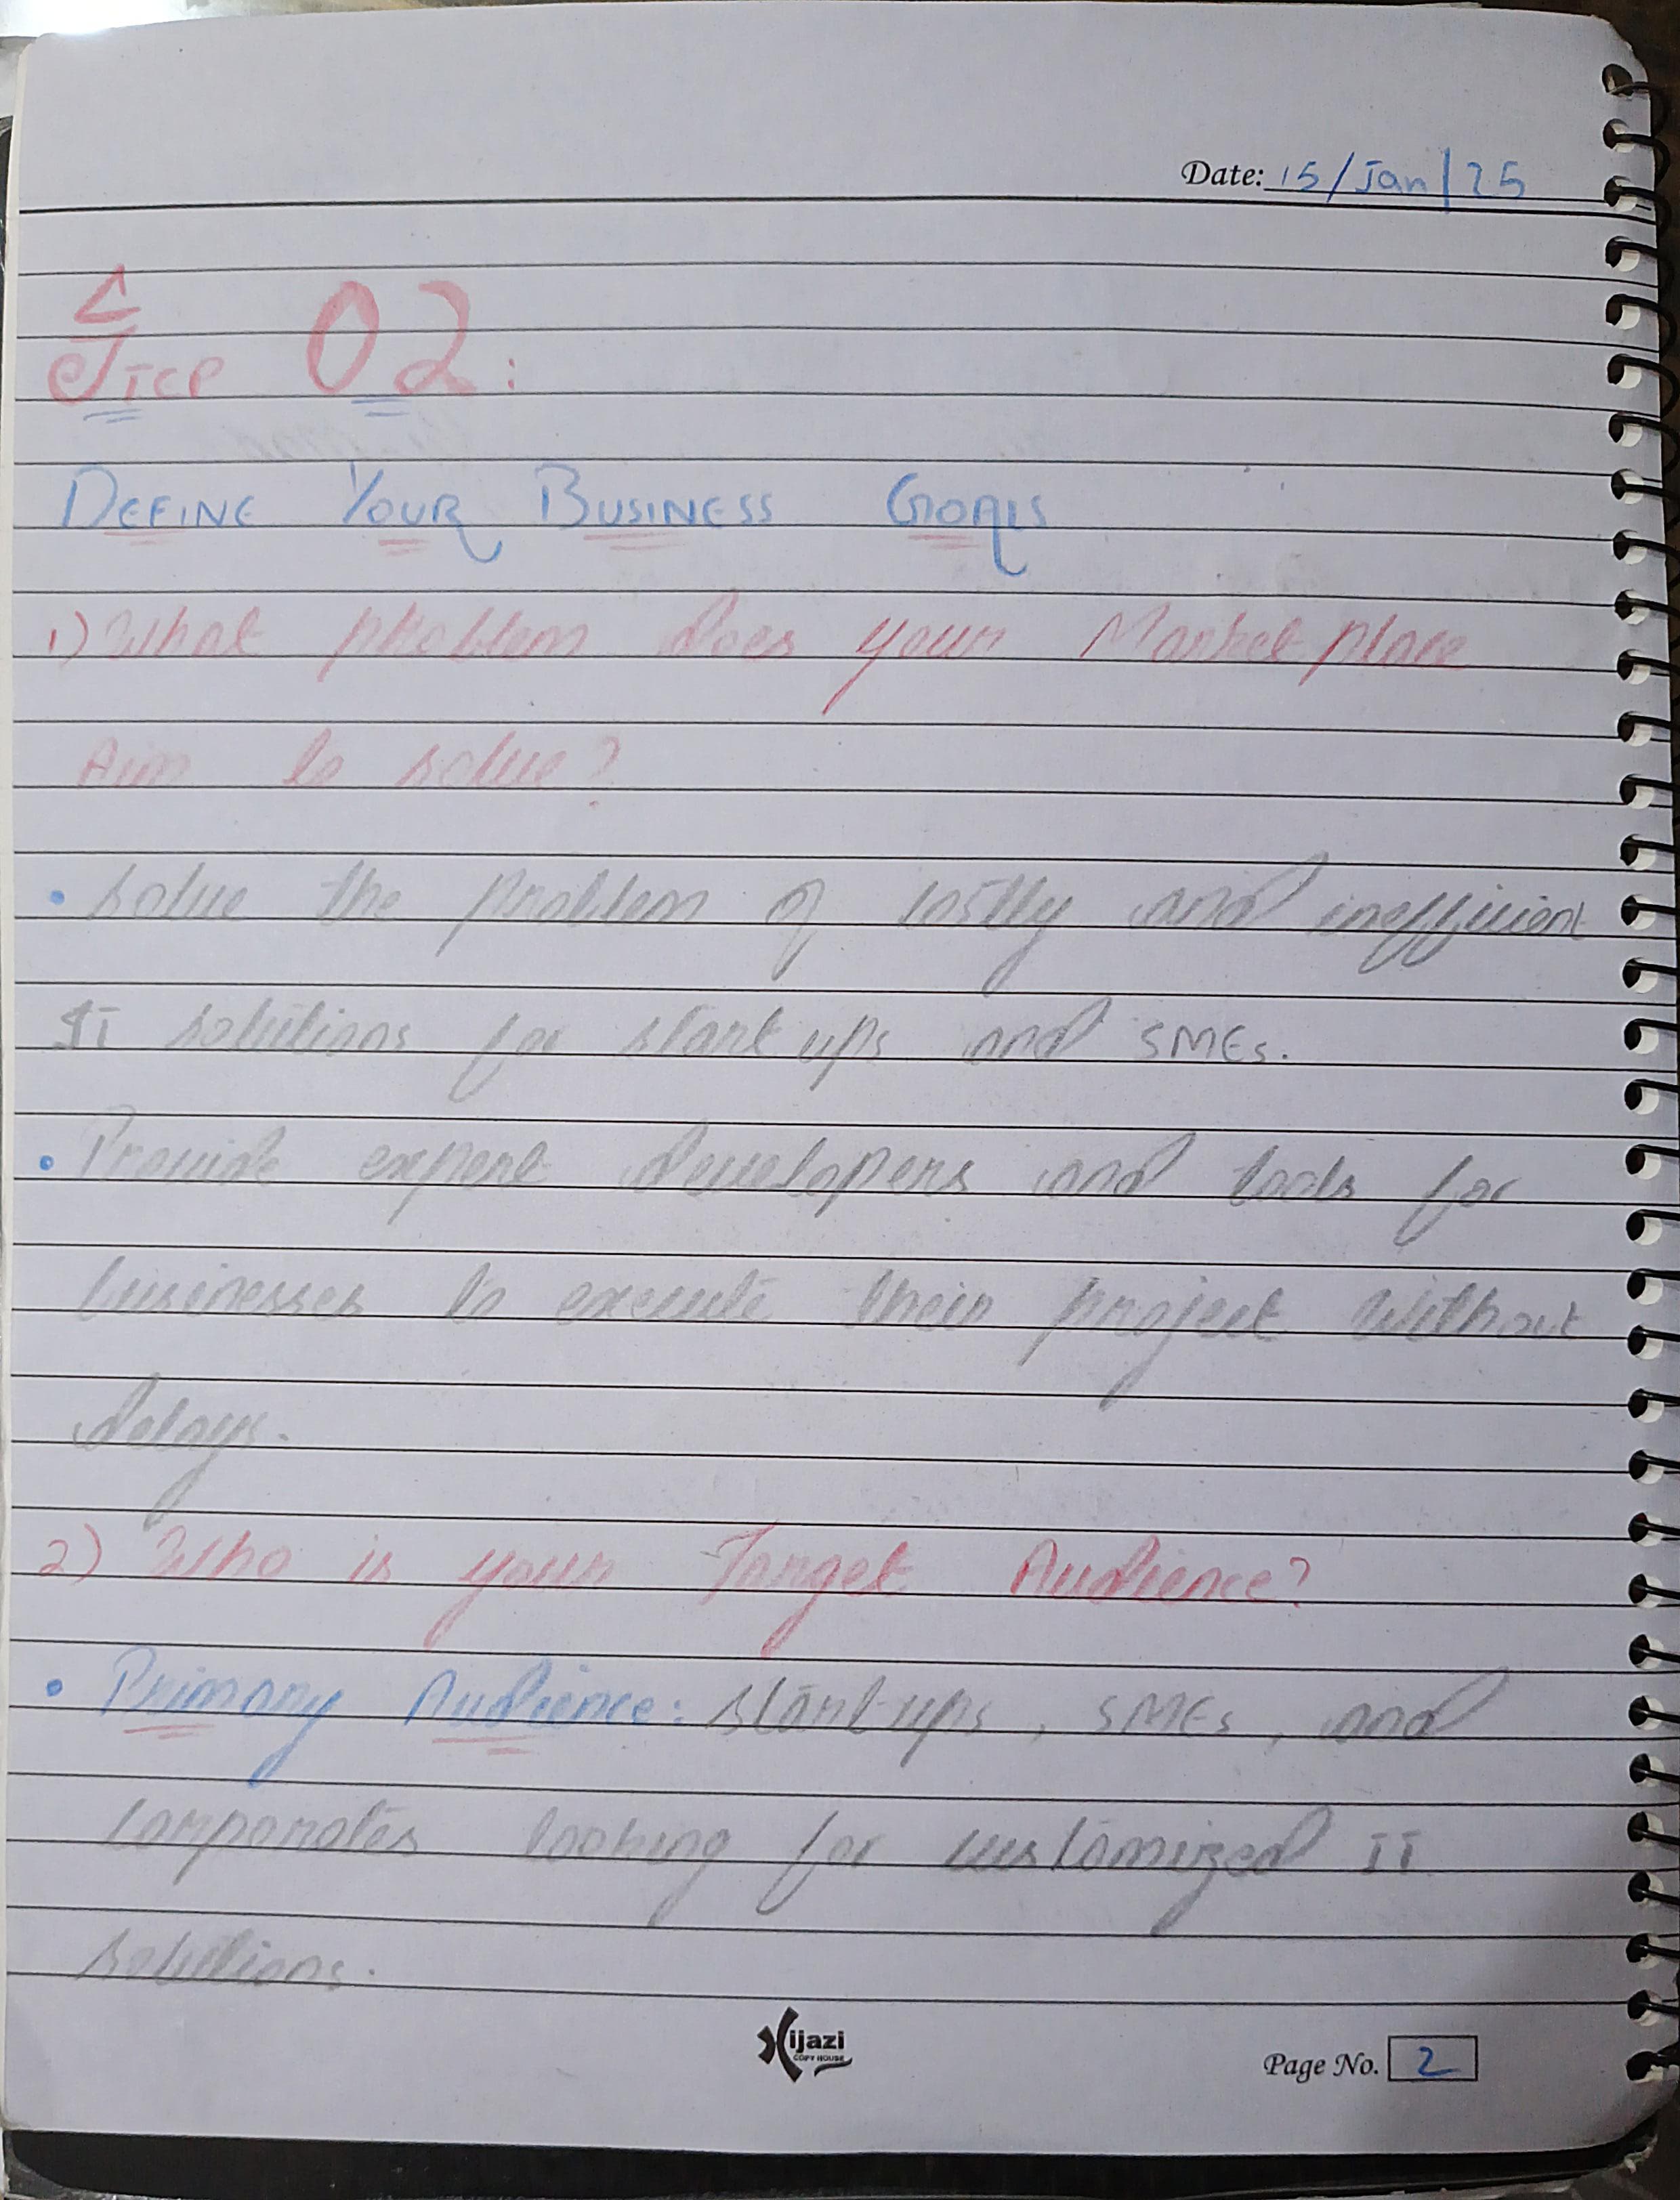 Date: 15/Jan/25
STEP 02:
DEFINE YOUR BUSINESS GOALS
1) What problem does your Market place
Aim to solve?
• Solve the problem of costly and inefficient
IT solutions for start ups and SMEs.
• Provide expert developers and tools for
businesses to execute their project without
delays.
2) Who is your Target Audience?
• Primary Audience: start-ups, SMEs, and
corporates looking for customized IT
solutions.
Hijazi
COPY HOUSE
Page No. 2